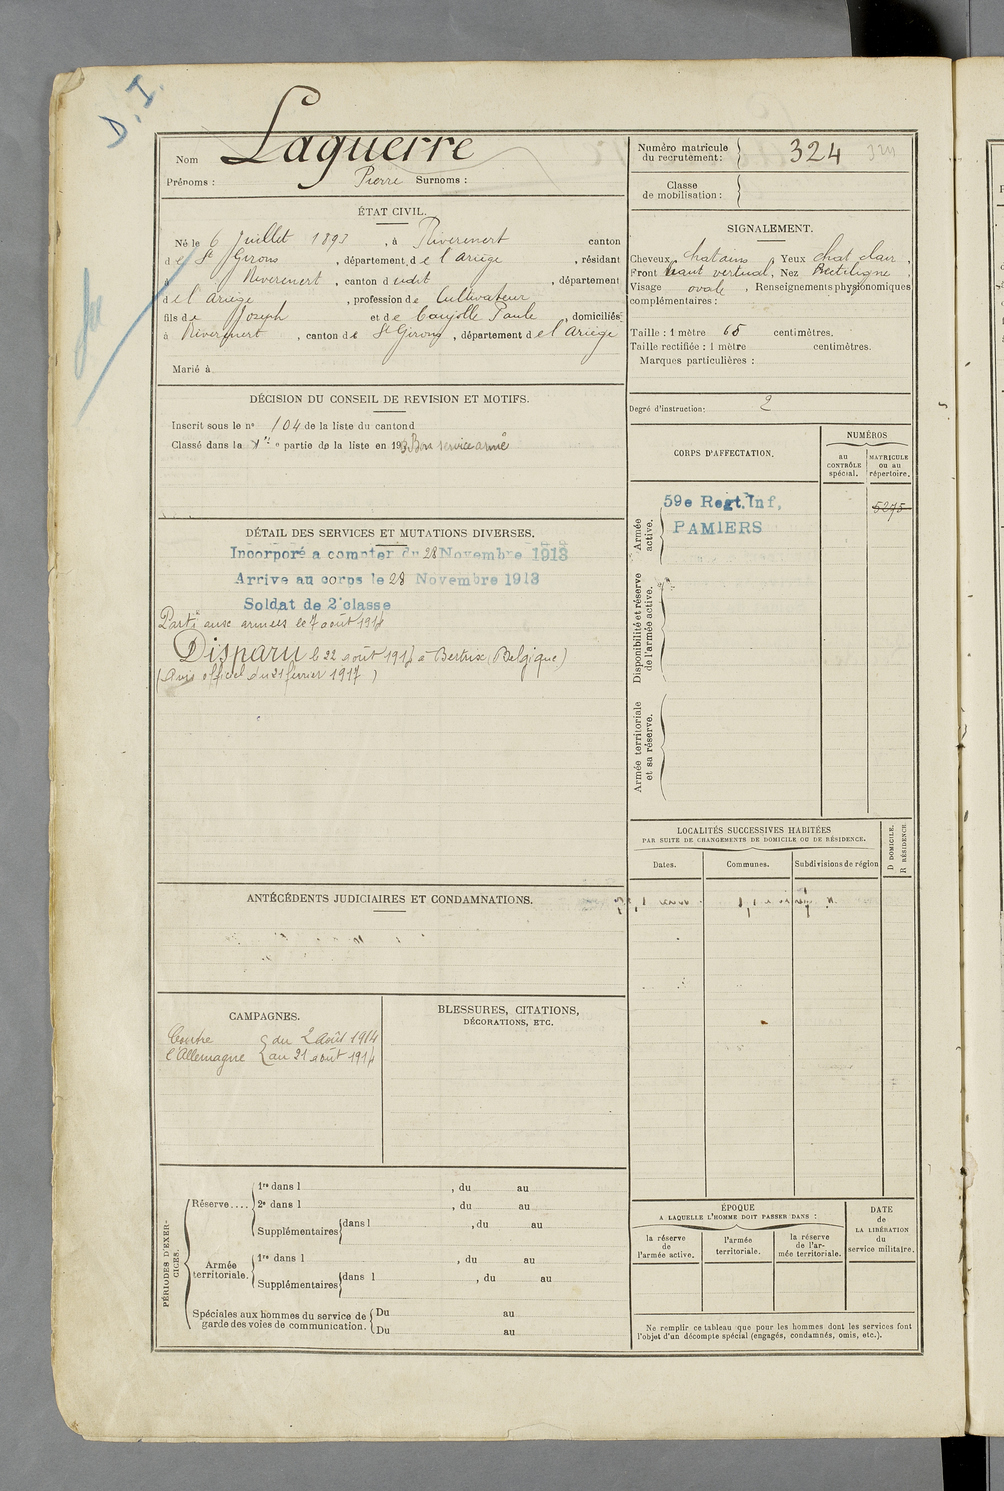 D. I.
Nom Laguerre
Prénoms : Pierre Surnoms :
ÉTAT CIVIL.
Né le 6 Juillet 1893, à Riverenert canton
de St Girons, département de l'Ariège, résidant
à Riverenert, canton dudit, département
de l'Ariège, profession de Cultivateur
fils de Joseph et de Coujolle Paule, domiciliés
à Riverenert, canton de St Girons, département de l'Ariège
Marié à
DÉCISION DU CONSEIL DE REVISION ET MOTIFS.
Inscrit sous le no 104 de la liste du canton d
Classé dans la e partie de la liste en 1913 Bon service armé
DÉTAIL DES SERVICES ET MUTATIONS DIVERSES.
Incorporé a compter du 28 Novembre 1913
Arrive au corps le 28 Novembre 1913
Soldat de 2e classe
Parti aux armées le 7 août 1914
Disparu le 22 août 1914 à Bertrix (Belgique)
(Avis officiel du 21 février 1917)
ANTÉCÉDENTS JUDICIAIRES ET CONDAMNATIONS.
CAMPAGNES.
Contre { du 2 Août 1914
l'Allemagne { au 21 août 1914
BLESSURES, CITATIONS,
DÉCORATIONS, ETC.
PÉRIODES D'EXER-
CICES.
Réserve....
1re dans l , du au
2e dans l , du au
Supplémentaires { dans l , du au
Armée
territoriale.
1re dans l , du au
Supplémentaires { dans l , du au
Spéciales aux hommes du service de { Du au
garde des voies de communication. { Du au
Numéro matricule
du recrutement : } 324 324
Classe
de mobilisation : }
SIGNALEMENT.
Cheveux chatains, Yeux chat clair,
Front haut vertical, Nez Rectiligne,
Visage ovale, Renseignements physionomiques
complémentaires :
Taille : 1 mètre 65 centimètres.
Taille rectifiée : 1 mètre centimètres.
Marques particulières :
Degré d'instruction : 2
CORPS D'AFFECTATION.
NUMÉROS
au
CONTRÔLE
spécial.
MATRICULE
ou au
répertoire.
Armée
active.
59e Regt. Inf.
PAMIERS
5275
Disponibilité et réserve
de l'armée active.
Armée territoriale
et sa réserve.
LOCALITÉS SUCCESSIVES HABITÉES
PAR SUITE DE CHANGEMENTS DE DOMICILE OU DE RÉSIDENCE.
D DOMICILE.
R RÉSIDENCE.
Dates. Communes. Subdivisions de région
ÉPOQUE
A LAQUELLE L'HOMME DOIT PASSER DANS :
la réserve
de
l'armée active.
l'armée
territoriale.
la réserve
de l'ar-
mée territoriale.
DATE
de
LA LIBÉRATION
du
service militaire.
Ne remplir ce tableau que pour les hommes dont les services font
l'objet d'un décompte spécial (engagés, condamnés, omis, etc.).